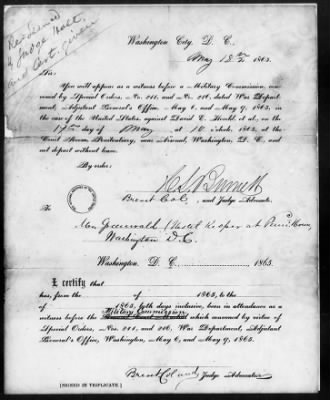 Washington City, D. C.
May 12th 1865.
Sir:
You will appear as a witness before a Military Commission, con-
vened by Special Orders, No. 211, and No. 216, dated War Depart-
ment, Adjutant General's Office, May 6, and May 9, 1865, in
the case of the United States, against David E. Herold, et al., on the
17th day of May at 10 o'clock, 1865, at the
Court Room, Penitentiary, near Arsenal, Washington, D. C., and
not depart without leave.
By order:
H L Burnett
Brevet Col. and Judge Advocate.
To
Greenwald (Hotel Keeper at House
Washington D.C.
Washington, D. C. 1865.
I certify that
has, from the of 1865, to the
of 1865, both days inclusive, been in attendance as a
Military Commission
witness before the which convened by virtue of
Special Orders, Nos. 211, and 216, War Department, Adjutant
General's Office, Washington, May 6, and May 9, 1865.
Brevet Col and Judge Advocate
[SIGNED IN TRIPLICATE.]